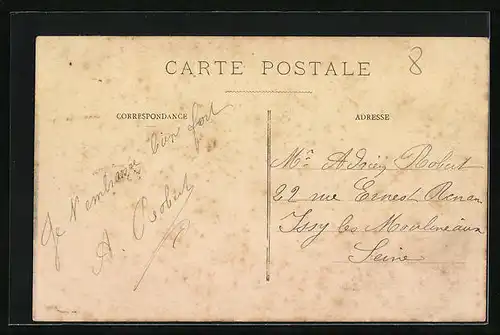 8
CARTE POSTALE
CORRESPONDANCE
ADRESSE
Je t'embrasse bien fort
A. Robert
Mr Adrien Robert
22 rue Ernest Renan
Issy les Moulineaux
Seine